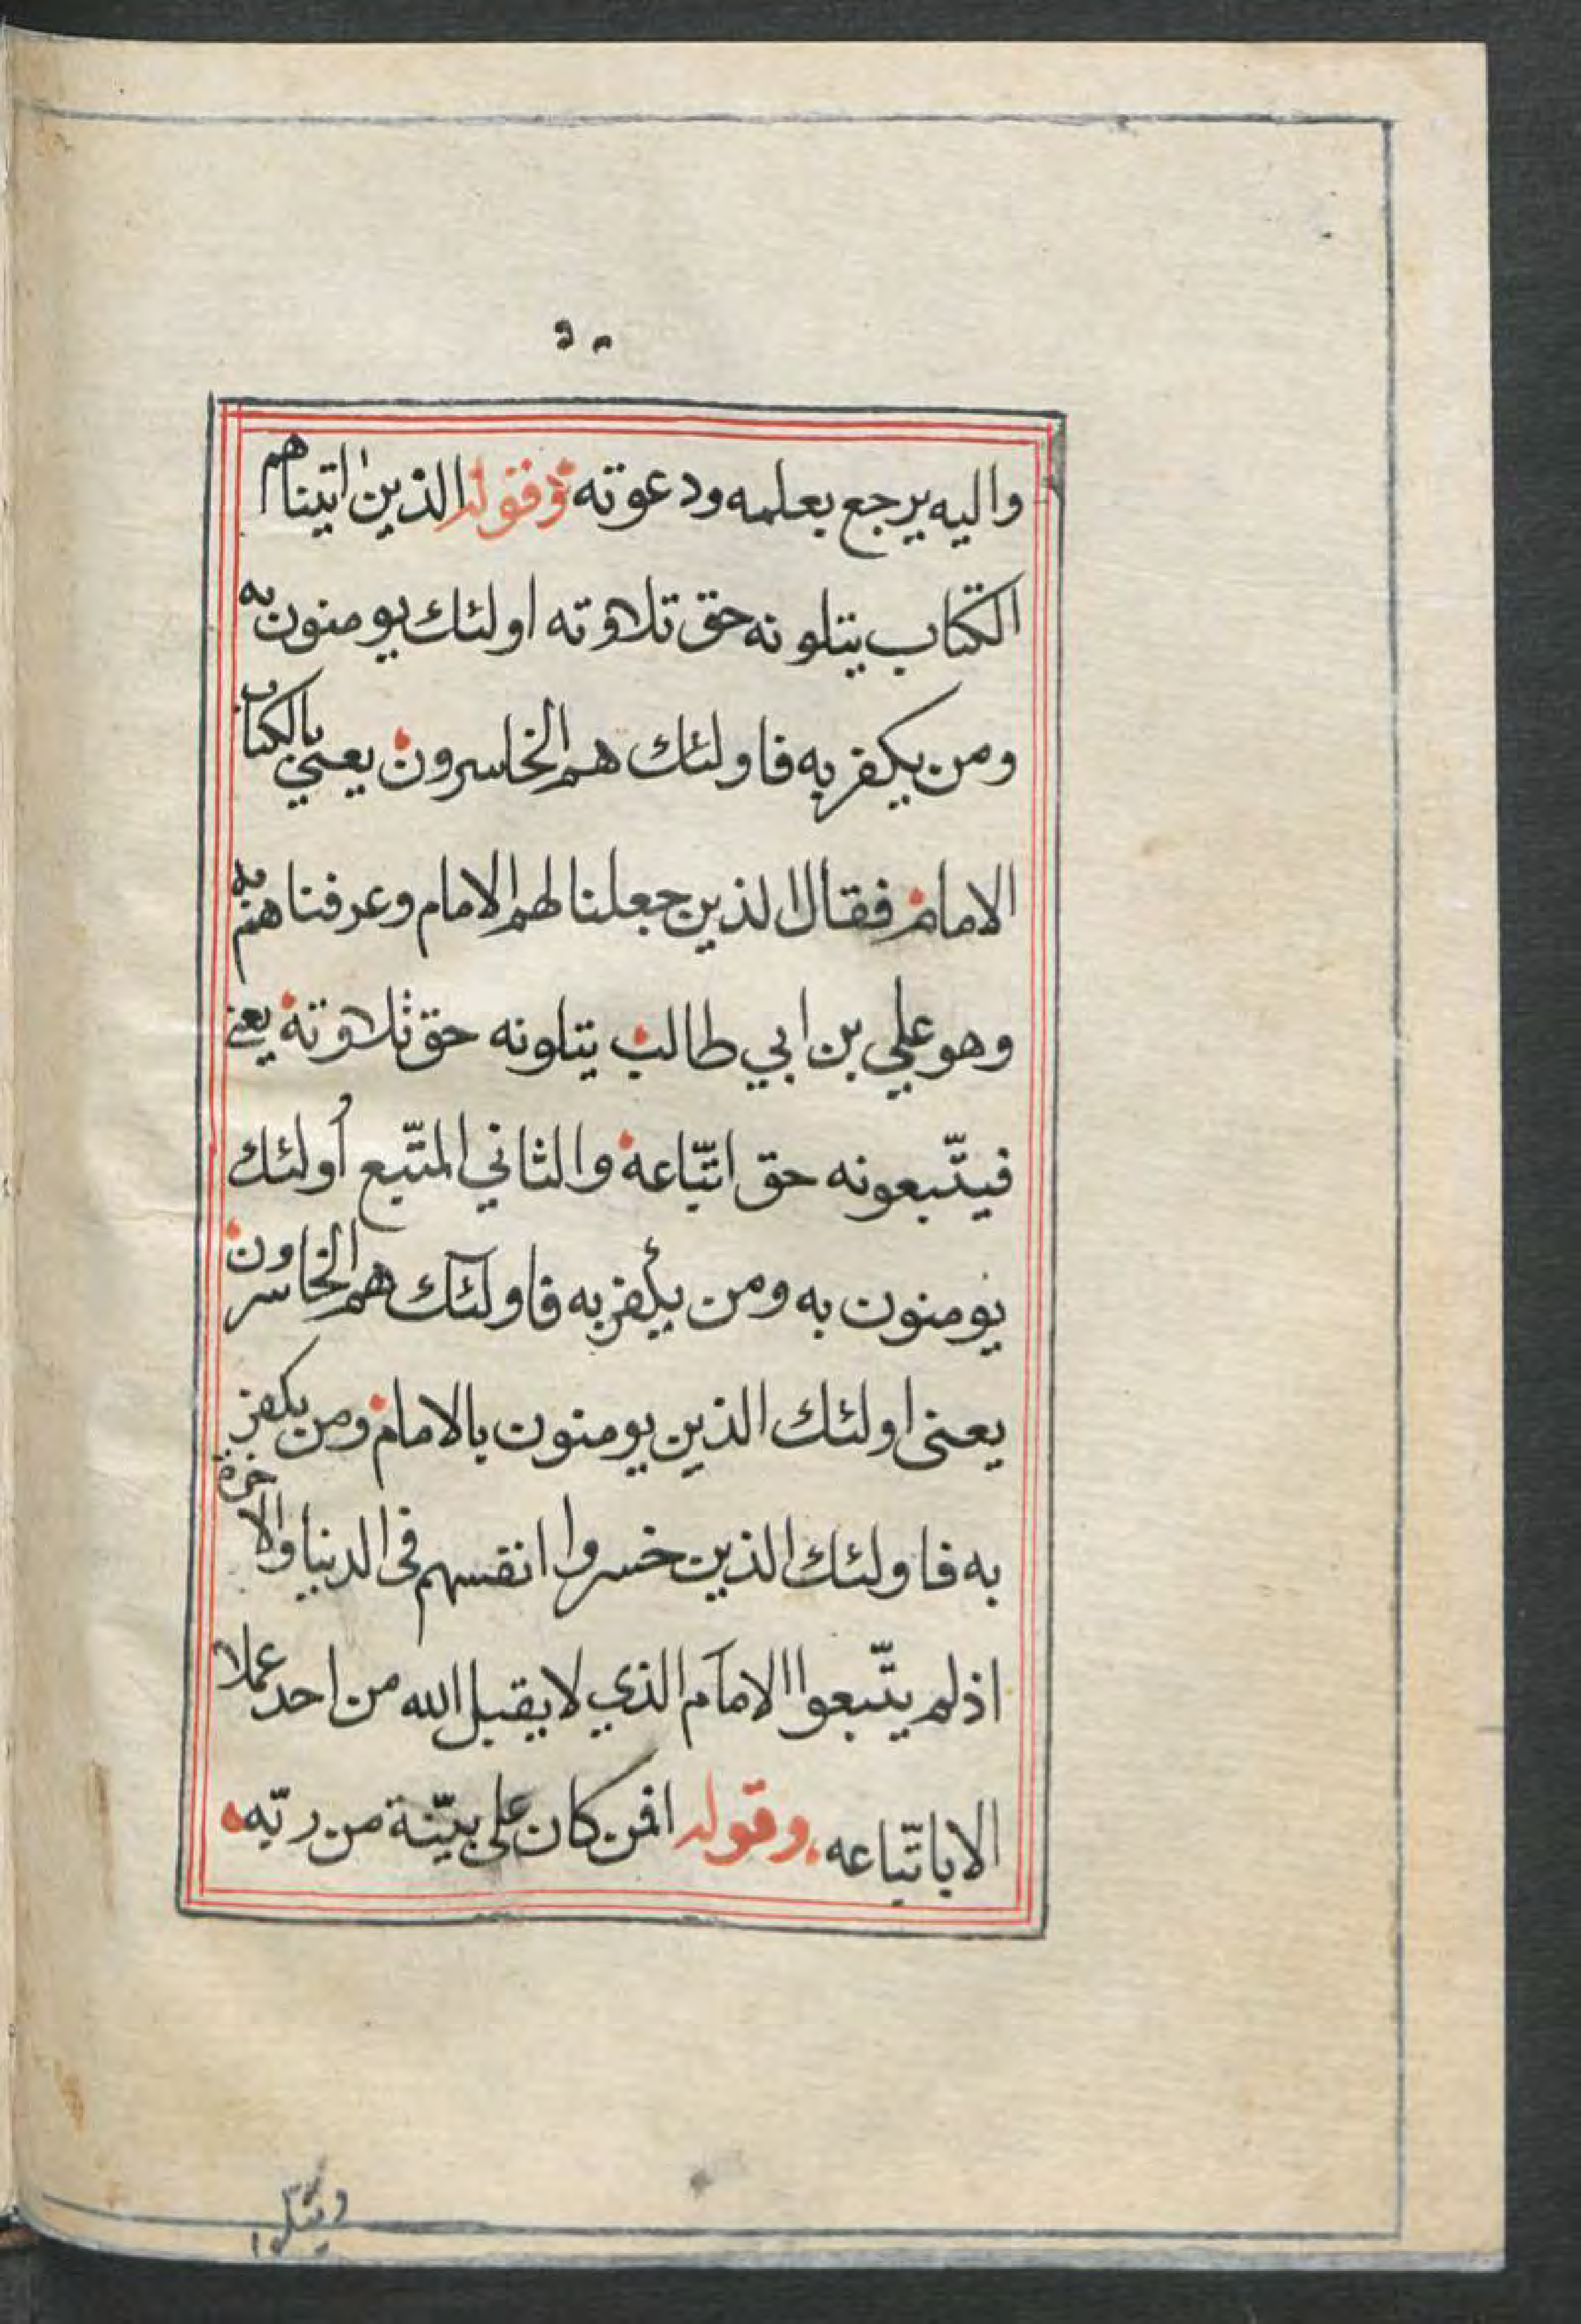 ٥٠
واليه يرجع بعلمه ودعوته وقوله الذين اتيناهم
الكتاب يتلونه حق تلاوته اولئك يومنون به
ومن يكفر به فاولئك هم الخاسرون يعني بالكتاب
الامام فقال الذين جعلنا لهم الامام وعرفناهم به
وهو علي بن ابي طالب يتلونه حق تلاوته يعني
فيتّبعونه حق اتّباعه والثاني المتّبع أولئك
يومنون به ومن يكفر به فاولئك هم الخاسرون
يعنى اولئك الذين يومنون بالامام ومن يكفر
به فاولئك الذين خسروا انفسهم فى الدنيا والاخرة
اذ لم يتّبعوا الامام الذي لا يقبل الله من احد عملا
الا باتّباعه وقوله افمن كان على بيّنة من ربّه
ويتلوا